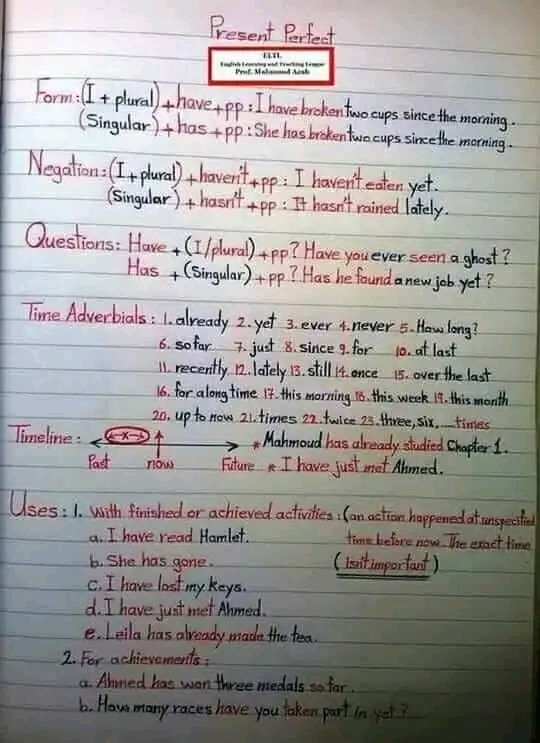 Present Perfect
ELTL
English Learning and Teaching League
Prof. Mahmoud Azab
Form: (I + plural) + have + pp : I have broken two cups since the morning.
(Singular) + has + pp : She has broken two cups since the morning.
Negation: (I + plural) + haven't + pp : I haven't eaten yet.
(Singular) + hasn't + pp : It hasn't rained lately.
Questions: Have + (I/plural) + pp ? Have you ever seen a ghost ?
Has + (Singular) + pp ? Has he found a new job yet ?
Time Adverbials : 1. already 2. yet 3. ever 4. never 5. How long?
6. so far 7. just 8. since 9. for 10. at last
11. recently 12. lately 13. still 14. once 15. over the last
16. for along time 17. this morning 18. this week 19. this month
20. up to now 21. times 22. twice 23. three, six, ... times
Timeline : x * Mahmoud has already studied Chapter 1.
Past now Future * I have just met Ahmed.
Uses : 1. With finished or achieved activities : (an action happened at unspecified
a. I have read Hamlet. time before now. The exact time
b. She has gone. (isn't important)
c. I have lost my keys.
d. I have just met Ahmed.
e. Leila has already made the tea.
2. For achievements :
a. Ahmed has won three medals so far.
b. How many races have you taken part in yet ?